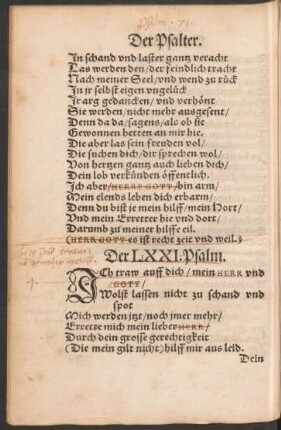 Der Psalter.
In schand vnd laster gantz veracht
Das werden den / der feindlich tracht
Nach meiner Seel / vnd wend zu rück
In jr selbst eigen vngelück
Ir arg gedancken / vnd verhönt
Sie werden / nicht mehr ausgesent /
Denn da da / sagens / als ob sie
Gewonnen hetten an mir hie.
Die aber las sein freuden vol /
Die suchen dich / dir sprechen wol /
Von hertzen gantz auch lieben dich /
Dein lob verkünden öffentlich.
Ich aber / HERRE GOTT / bin arm /
Mein elends leben dich erbarm /
Denn du bist je mein hilff / mein Hort /
Vnd mein Erretter hie vnd dort /
Darumb zu meiner hilffe eil.
(HERR GOTT es ist recht zeit vnd weil.)
Der LXXI. Psalm.
ICh traw auff dich / mein HERR vnd
GOTT /
Wolst lassen nicht zu schand vnd
spot
Mich werden jtzt / noch jmer mehr /
Errette mich mein lieber HERR /
Durch dein grosse gerechtigkeit
(Die mein gilt nicht) hilff mir aus leid.
Dein